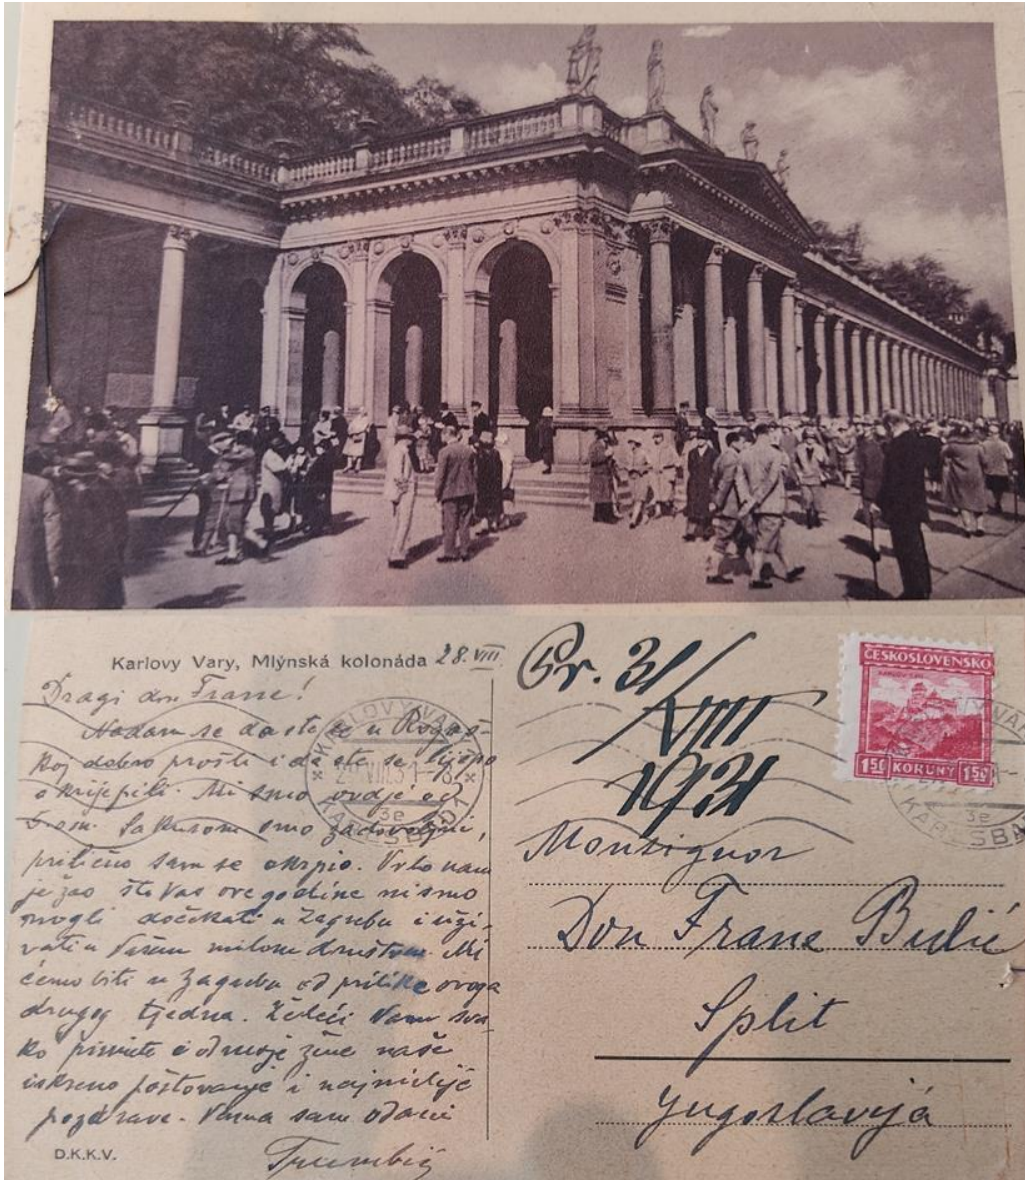 Karlovy Vary, Mlýnská kolonáda 28.VIII
Dragi don Frane!
Nadam se da ste se u Rogaš-
koj dobro prošli i da ste se lijepo
okrijepili. Mi smo ovdje od
Sa kurom smo zadovoljni,
prilično sam se okrpio. Vrlo nam
je žao što Vas ove godine nismo
mogli dočekati u Zagrebu i uži-
vati u Vašem milom društvu. Mi
ćemo biti u Zagrebu od prilike ovoga
drugog tjedna. Želeći Vam sva-
ko primite i od moje žene naše
iskreno poštovanje i najmilije
pozdrave. Vama sam odani
Trumbić
D.K.K.V.
Pr. 31/
VIII
1931
ČESKOSLOVENSKO
1.50 KORUNY 1.50
KARLOVY VARY
29.VIII.31-8
3e
KARLSBAD 1
VARY
3e
KARLSBAD
Monsignor
Don Frane Bulić
Split
Yugoslavija